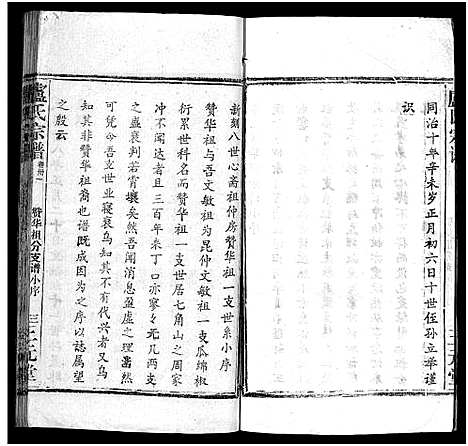 同治十年辛未岁正月初六日十世侄孙立举谨
识
新刻八世心斋祖仲房赞华祖一支世系小序
赞华祖与吾文敏祖为昆仲文敏祖一支瓜绵椒
衍累世科名而赞华祖一支世居七角山之周家
冲不闻达者且三百年来丁口亦寥々元凡两支
之盛衰判若霄壤矣然吾闻消息盈虚之理凿然
可凭今吾支世业凌夷乌知其不有代兴者又乌
知其非赞华祖裔也谱既成因为之序以志属望
之殷云
卢氏宗谱
卷卅一
赞华祖分支谱小序
三元堂